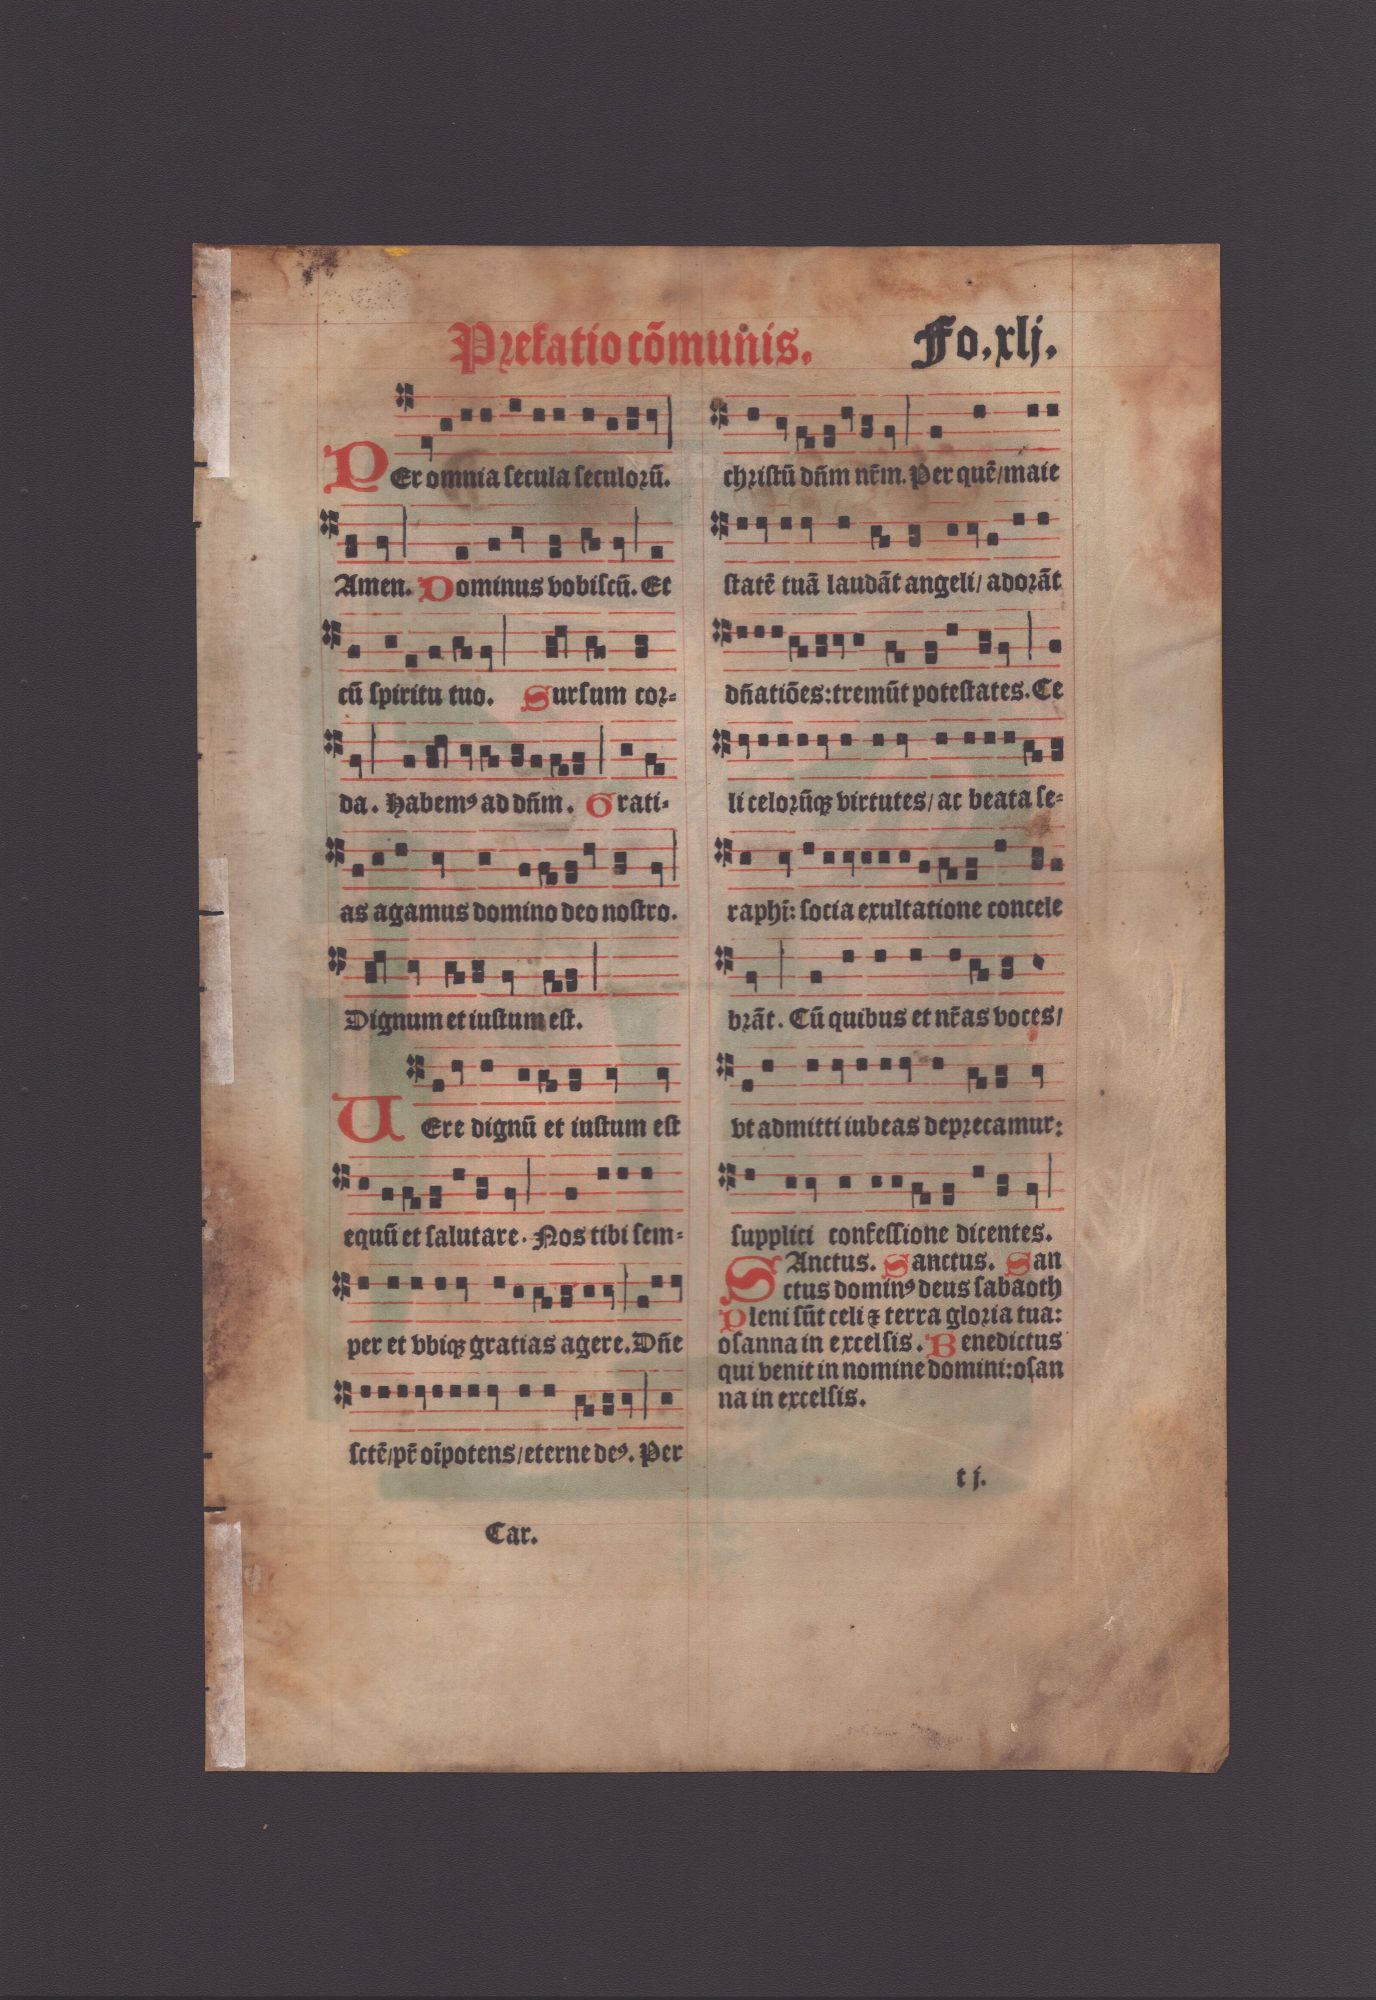 Prefatio cõmunis.
Fo. xlj.
PEr omnia ſecula ſeculoꝝũ.
Amen. Dominus vobiſcũ. Et
cũ ſpiritu tuo. Surſum coꝛ⸗
da. Habemꝰ ad dñm. Grati⸗
as agamus domino deo noſtro.
Dignum et iuſtum eſt.
UEre dignũ et iuſtum eſt
equũ et ſalutare. Nos tibi ſem⸗
per et vbiqꝫ gratias agere. Dñe
ſctẽ/pr̃ oĩpotens/eterne deꝰ. Per
chꝛiſtũ dñm nr̃m. Per quẽ/maie
ſtatẽ tuã laudãt angeli/ adoꝛãt
dñatiões: tremũt poteſtates. Ce
li celoꝛũqꝫ virtutes/ ac beata ſe⸗
raphĩ: ſocia exultatione concele
bꝛãt. Cũ quibus et nr̃as voces/
vt admitti iubeas depꝛecamur:
ſupplici confeſſione dicentes.
SAnctus. Sanctus. San
ctus dominꝰ deus ſabaoth
Pleni ſũt celi ⁊ terra gloꝛia tua:
oſanna in excelſis. Benedictus
qui venit in nomine domini: oſan
na in excelſis.
t j.
Car.